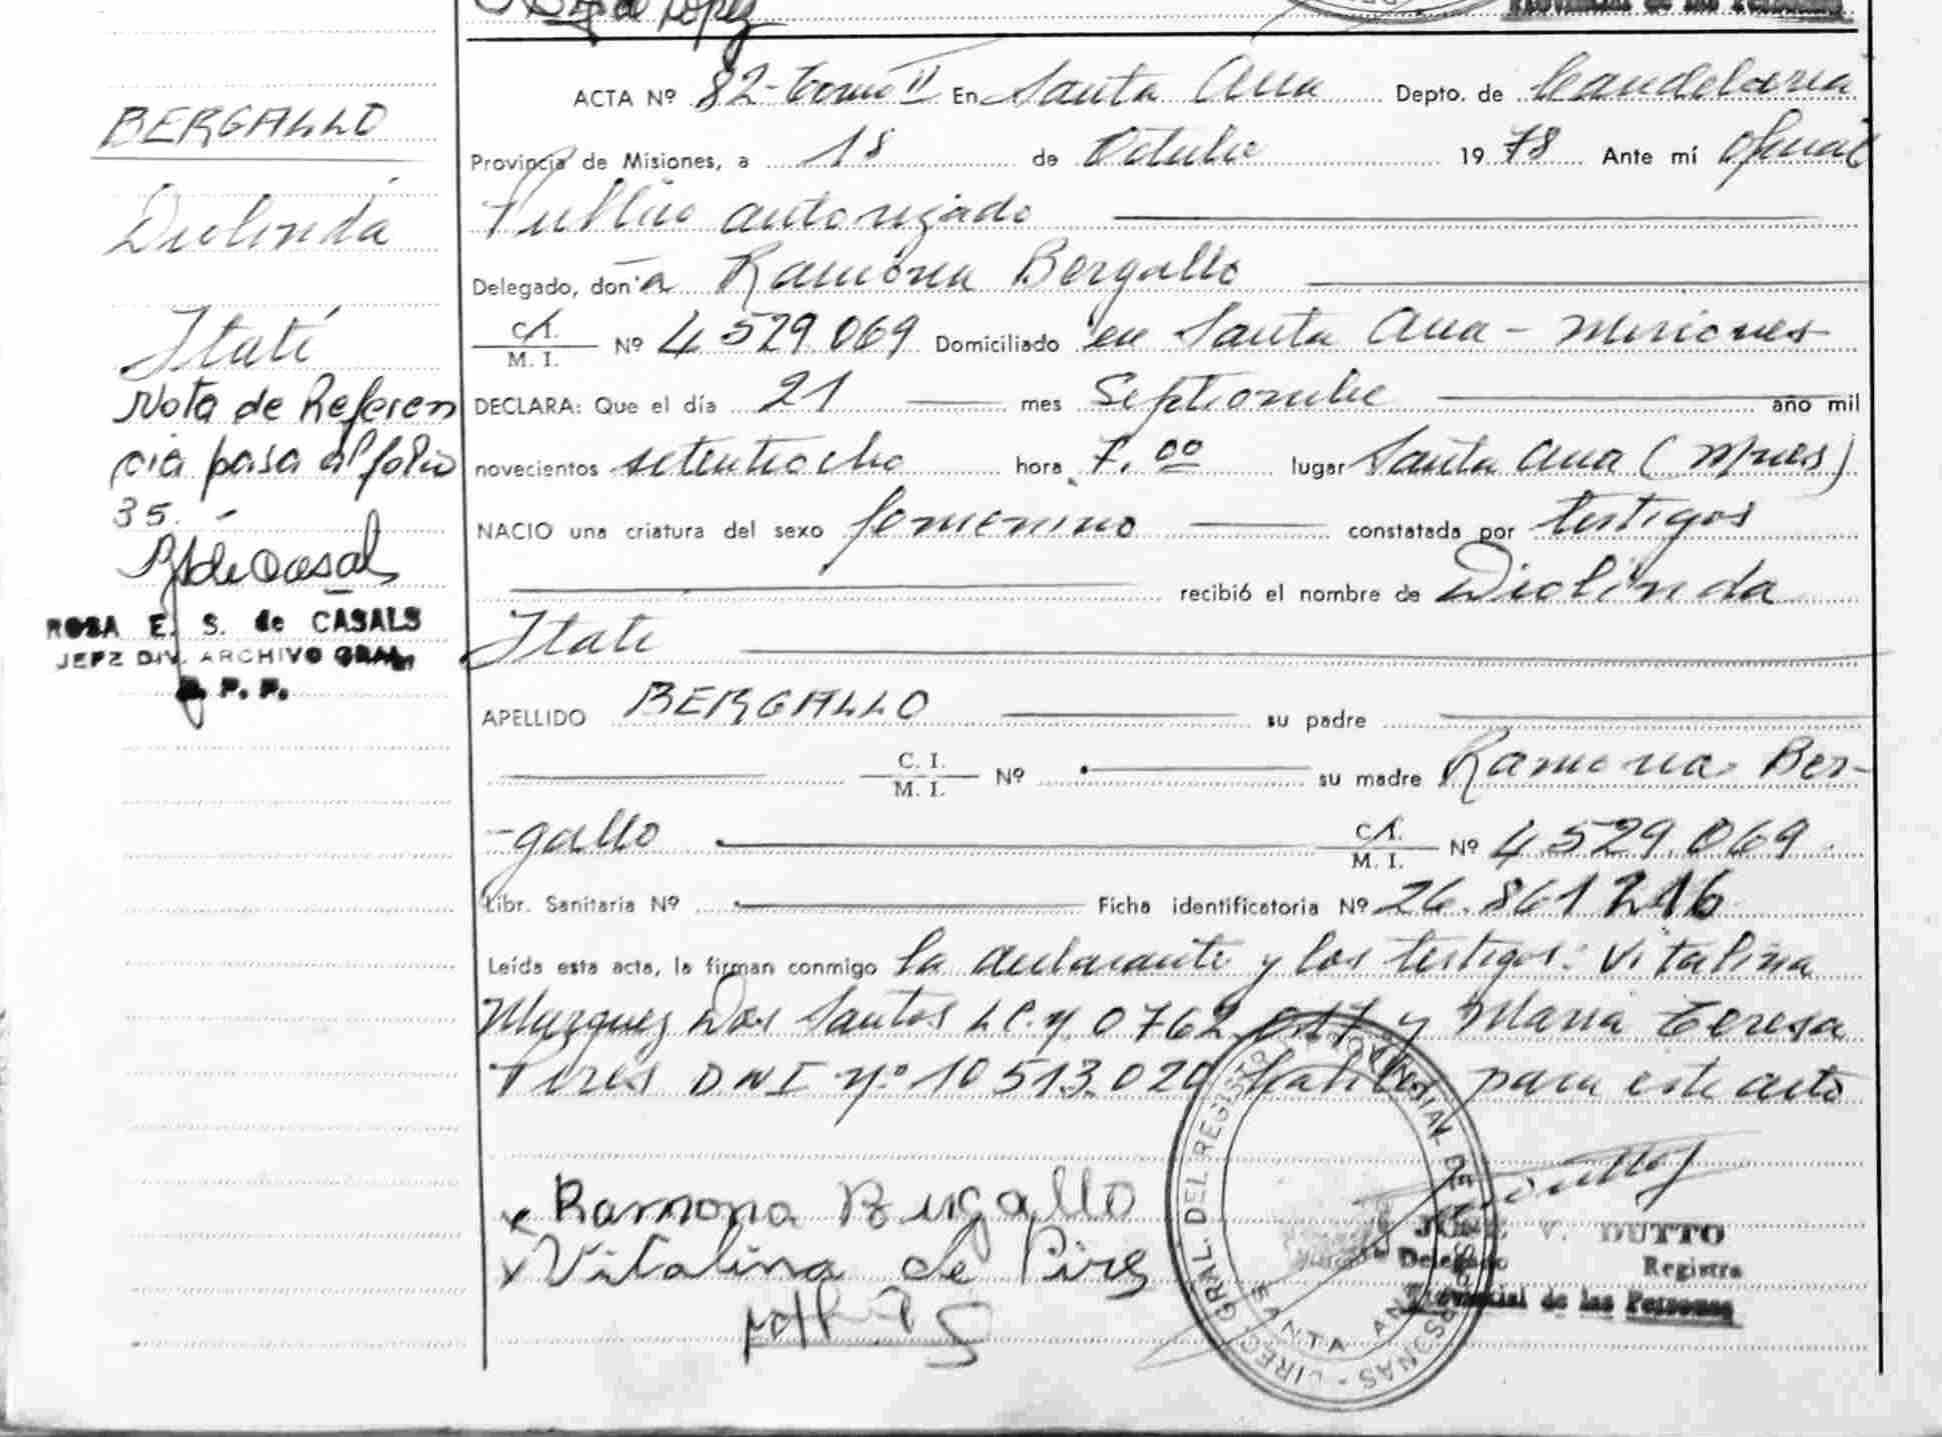 de López
Provincial de las Personas
BERGALLO
Diolinda
Itatí
Nota de Referen
cia pasa al folio
35. -
ROSA E. S. de CASALS
JEFE DIV. ARCHIVO GRAL.
R. P. P.
ACTA Nº 82-Tomo II En Santa Ana Depto. de Candelaria
Provincia de Misiones, a 18 de Octubre 1978 Ante mí Oficial
Publico autorizado
Delegado, doña Ramona Bergallo
C.I. / M. I. Nº 4.529.069 Domiciliado en Santa Ana - Misiones
DECLARA: Que el día 21 mes Septiembre año mil
novecientos setentiocho hora 7.00 lugar Santa Ana (Mnes)
NACIO una criatura del sexo femenino constatada por testigos
recibió el nombre de Diolinda
Itati
APELLIDO BERGALLO su padre
C. I. / M. I. Nº su madre Ramona Ber-
-gallo C.I. / M. I. Nº 4.529.069
Libr. Sanitaria Nº Ficha identificatoria Nº 26.861216
Leída esta acta, la firman conmigo la declarante y los testigos: Vitalina
Marquez Dos Santos L.C. Nº 0762.017 y Maria Teresa
Pires DNI Nº 10513.020 habiles para este acto
x Ramona Bergallo
x Vitalina de Pires
DIREC. GRAL. DEL REGISTRO PROVINCIAL DE LAS PERSONAS
SANTA ANA
JOSE V. DUTTO
Delegado Registro
Provincial de las Personas